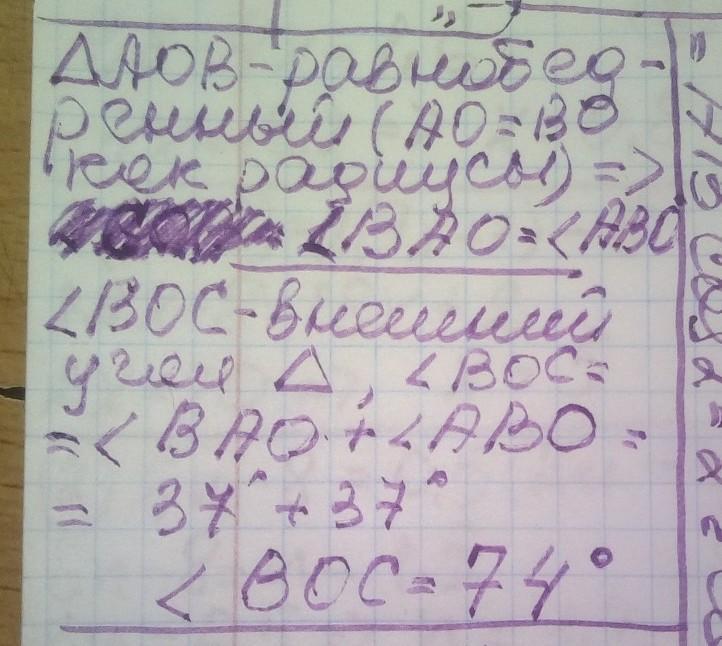 △AOB - равнобед-
ренный (AO=BO
как радиусы) =>
∠BAO=∠ABO
∠BOC - внешний
угол △, ∠BOC=
=∠BAO+∠ABO=
= 37°+37°
∠BOC=74°